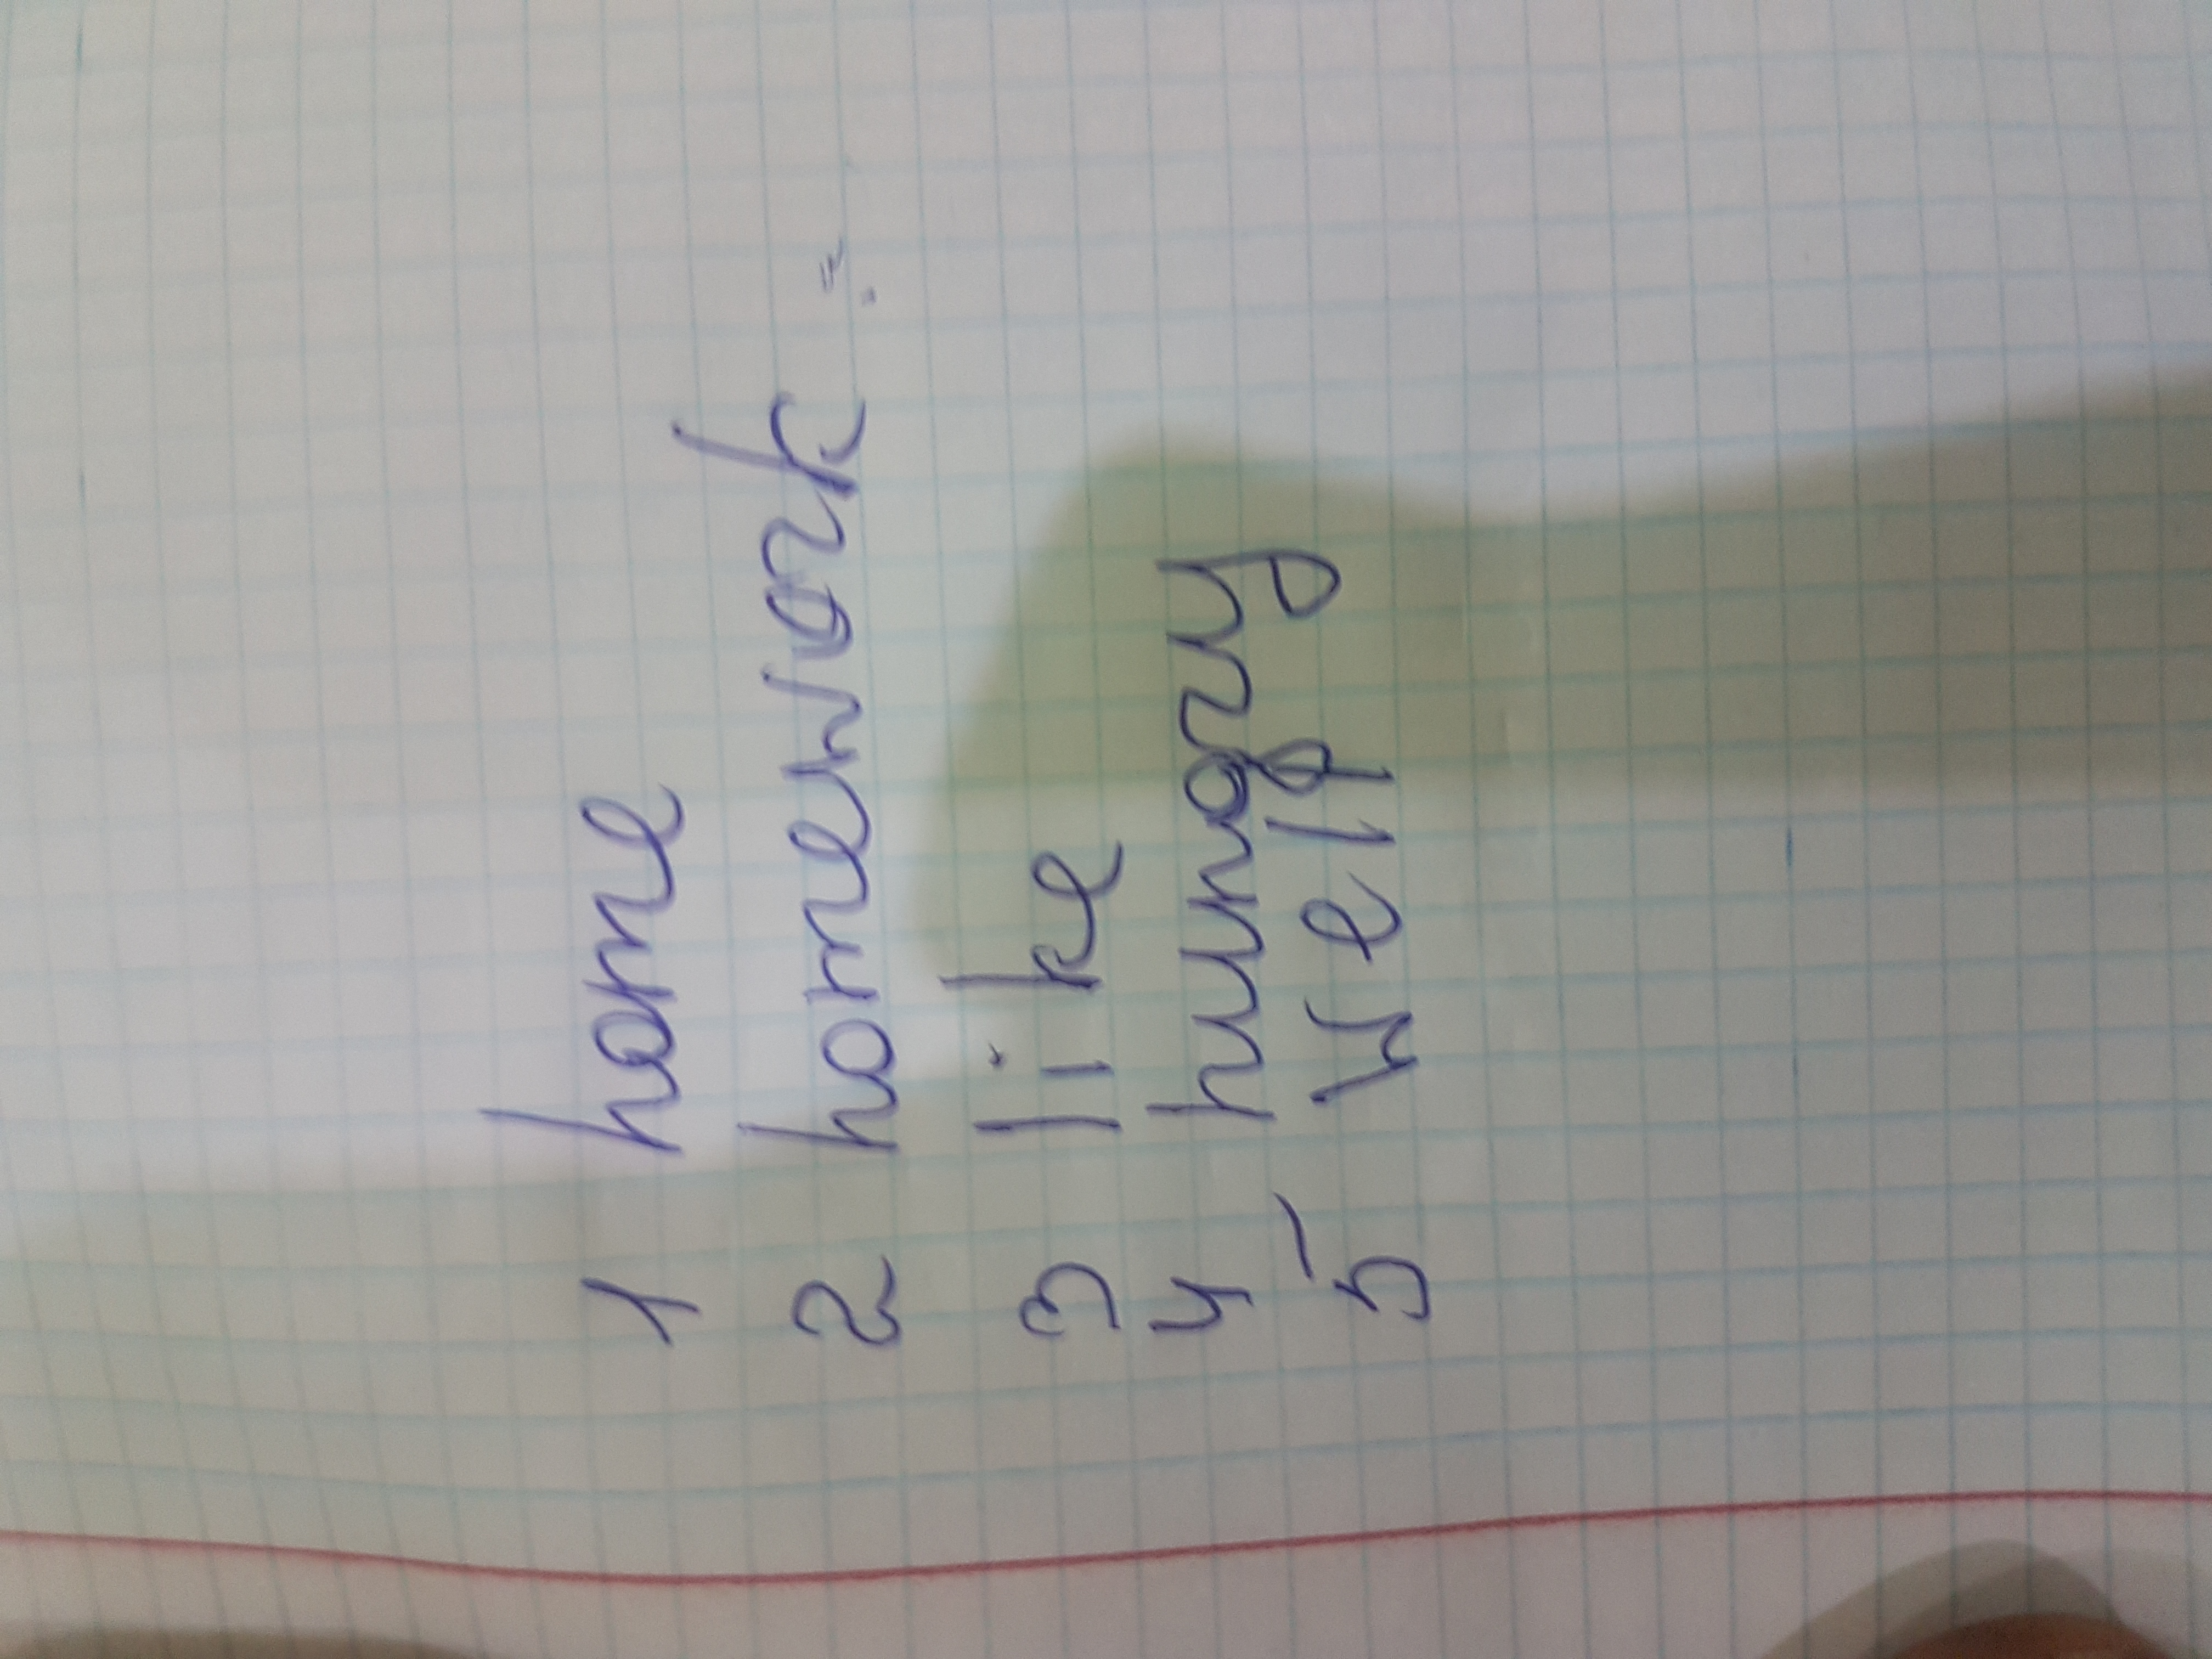 1 home
2 homework
3 like
4 hungry
5 well